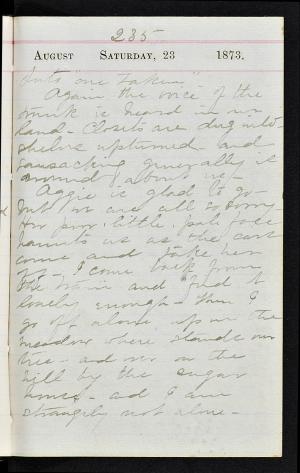 235
AUGUST SATURDAY, 23 1873.
Into "one taken"
Again the voice of the
trunk is heard in our
land - Closets are dug into
shelves upturned - and
ransacking generally is
around & about us -
Aggie is glad to go -
but we are all so sorry
Her poor, little, pale face
haunts us as the cars
come and take her
off - I come back from
the train and find it
lonely enough - Then I
go off alone up in the
meadow where stands our
tree - and over on the
hill by the sugar
house - ad I am
strangely not alone -